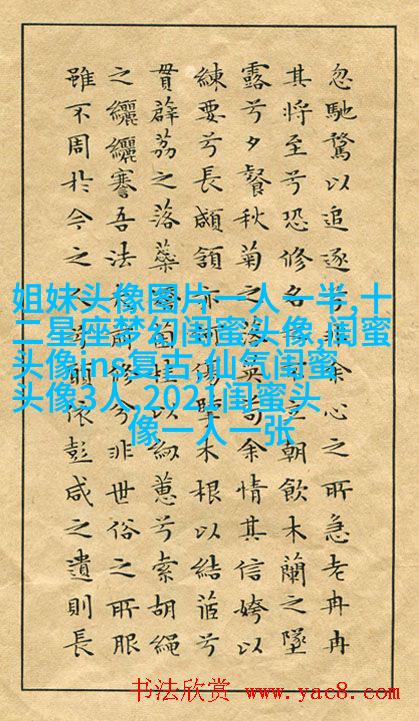 忽馳騖以追逐兮非余心之所急老冉冉
其將至兮恐修名之不立朝飲木蘭之墜
露兮夕餐秋菊之落英苟余情其信姱以
練要兮長顑頷亦何傷擥木根以結茝兮
貫薜荔之落蘂矯菌桂以紉蕙兮索胡繩
之纚纚謇吾法夫前修兮非世俗之所服
雖不周於今之人兮願依彭咸之遺則長
姐妹头像图片一人一半,十
二星座梦幻闺蜜头像,闺蜜
头像ins复古,仙气闺蜜
头像3人,2021闺蜜头
像一人一张
书法欣赏 www.yac8.com